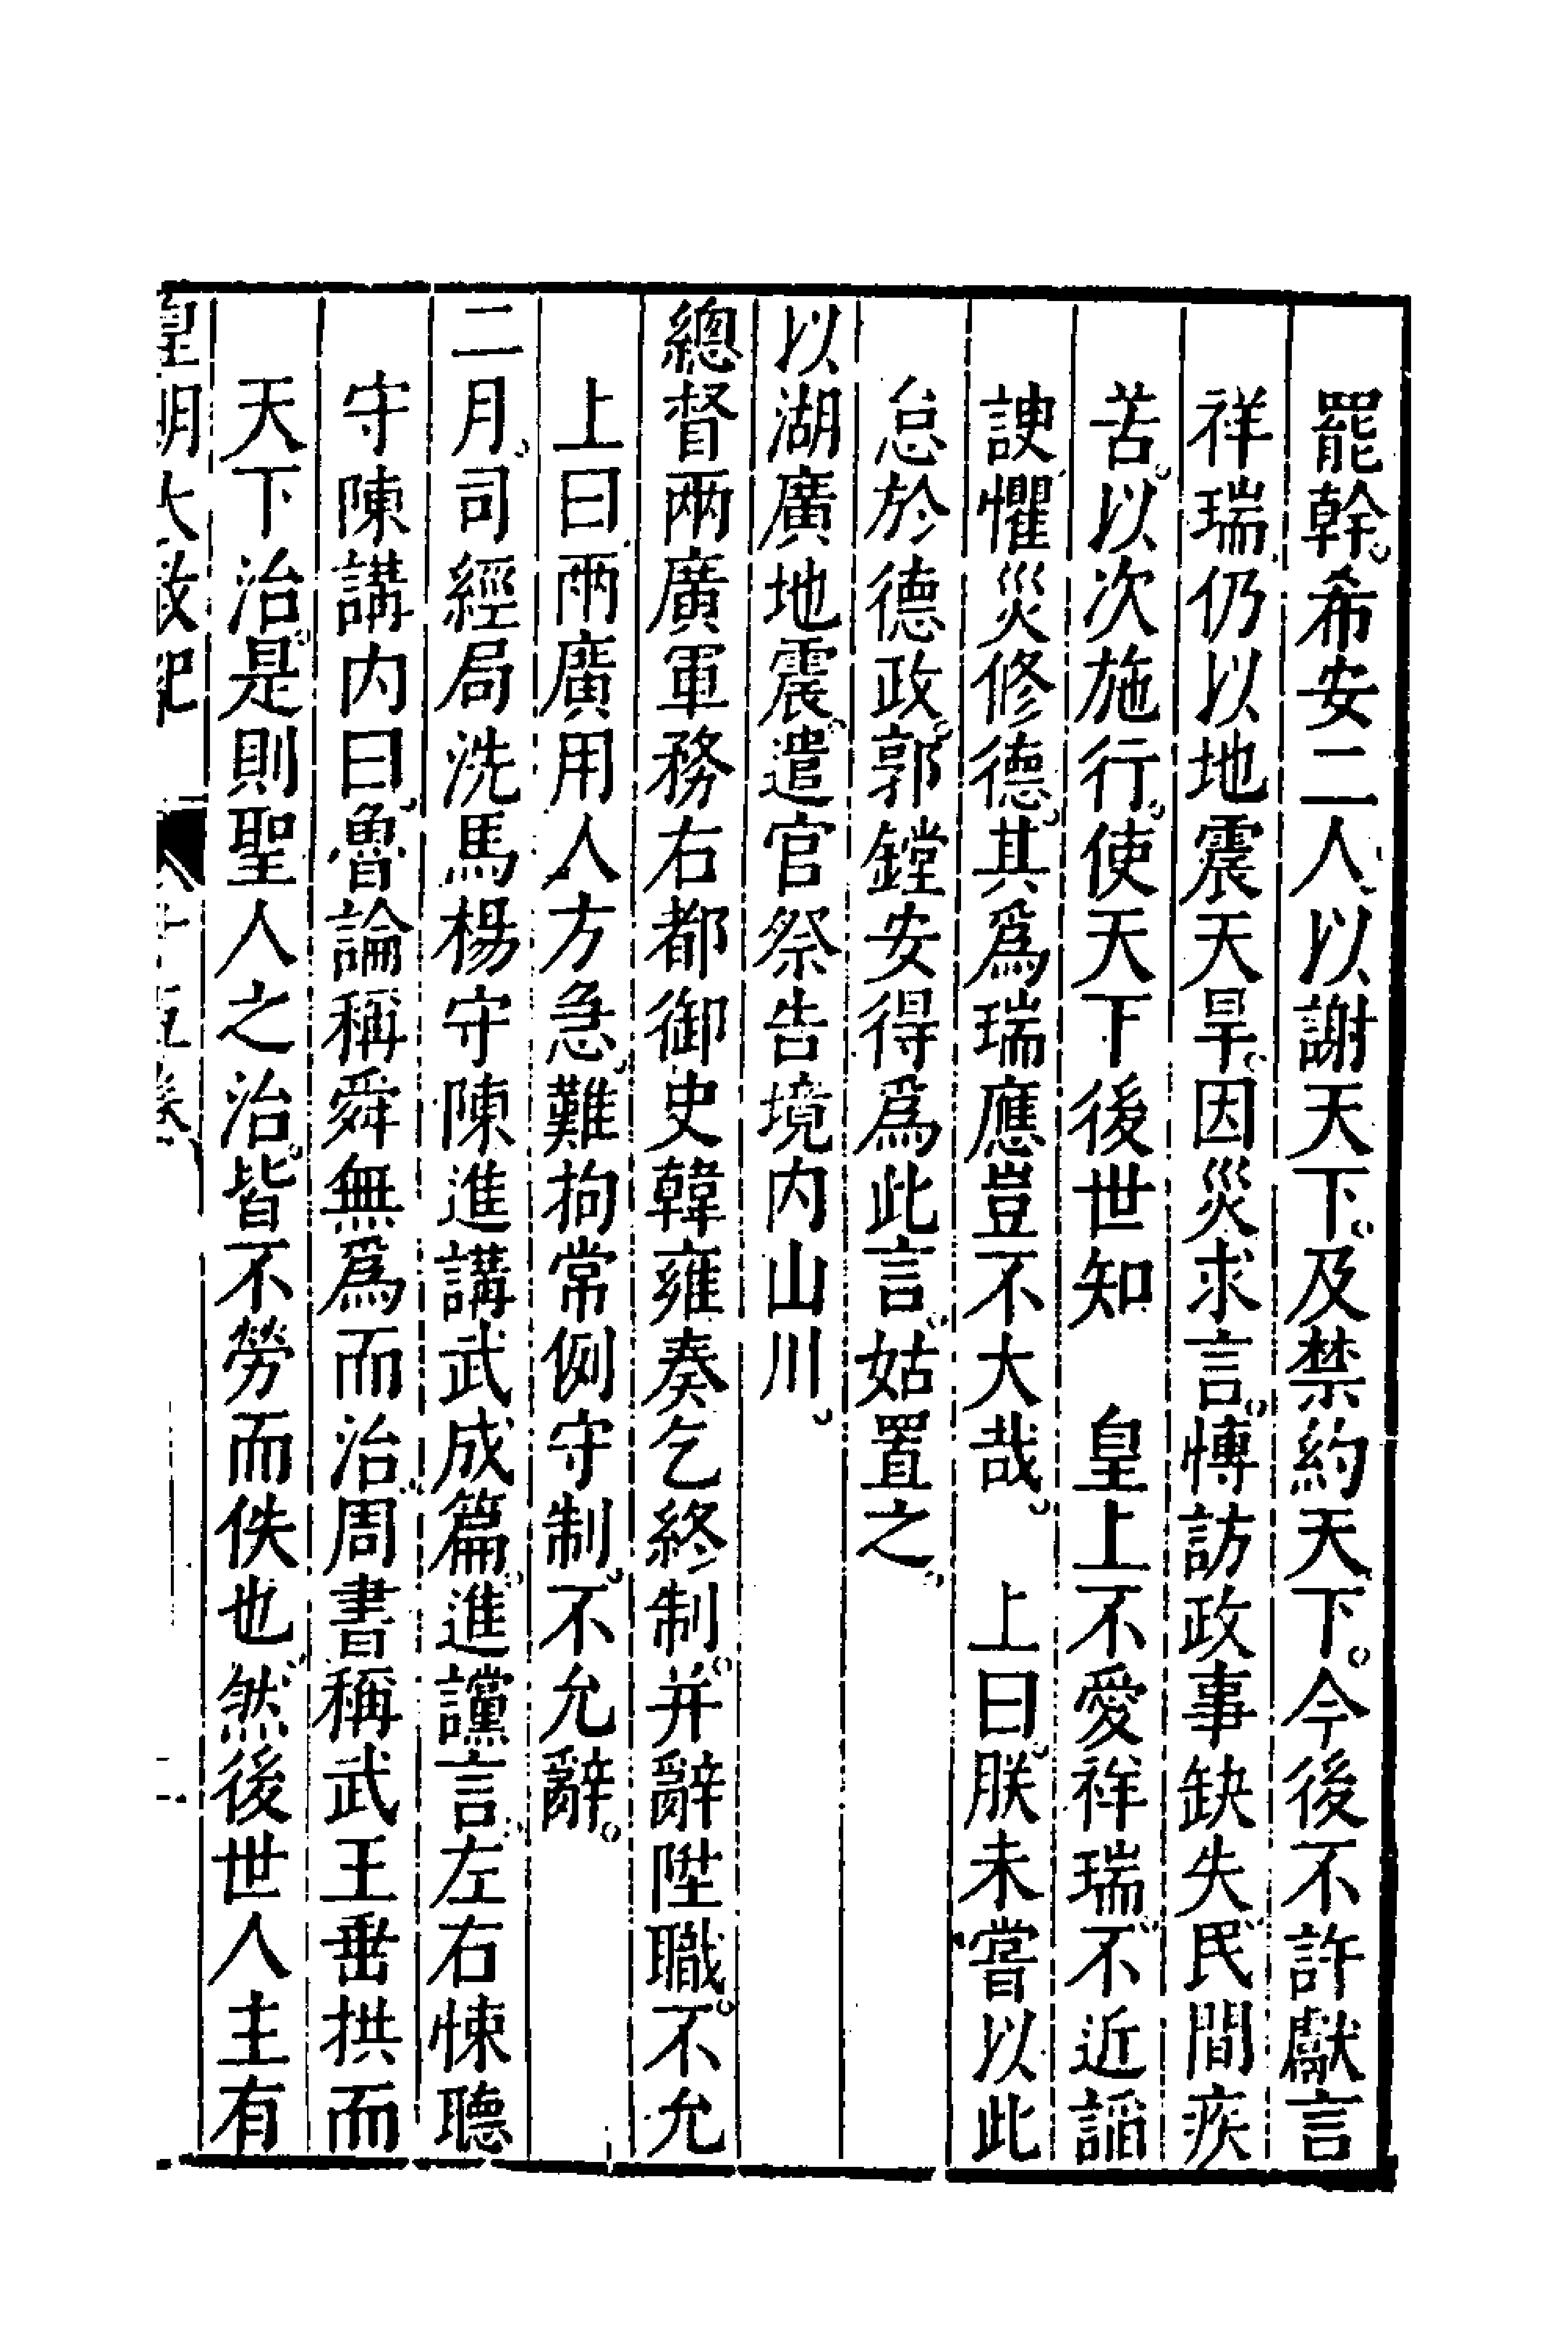 罷幹。希安二人以謝天下。及禁約天下。今後不許獻言
祥瑞。仍以地震天旱。因災求言。愽訪政事缺失民間疾
苦。以次施行。使天下後世知　皇上不愛祥瑞。不近謟
諛。懼災修德。其爲瑞應豈不大哉。　上曰。朕未嘗以此
怠於德政。郭鏜安得爲此言。姑置之。
以湖廣地震。遣官祭告境内山川。
總督兩廣軍務右都御史韓雍奏乞終制。并辭陞職。不允
上曰。兩廣用人方急。難拘常例守制。不允辭。
二月。司經局洗馬楊守陳進講武成篇。進讜言。左右悚聽
守陳講内曰。魯論稱舜無爲而治。周書稱武王垂拱而
天下治。是則聖人之治。皆不勞而佚也。然後世人主有
皇明大政紀　十五卷　二